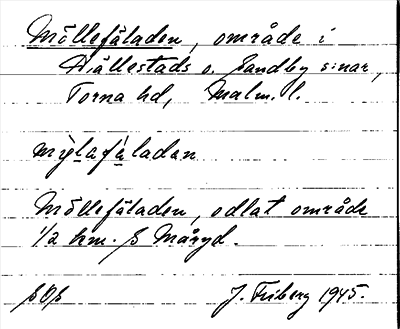 Möllefäladen, område i
Hällestads o. Sandby s:nar,
Torna hd, Malm. l.
mỳlafàladan
Möllefäladen, odlat område
1/2 km. S Måryd.
SOS J. Friberg 1945.